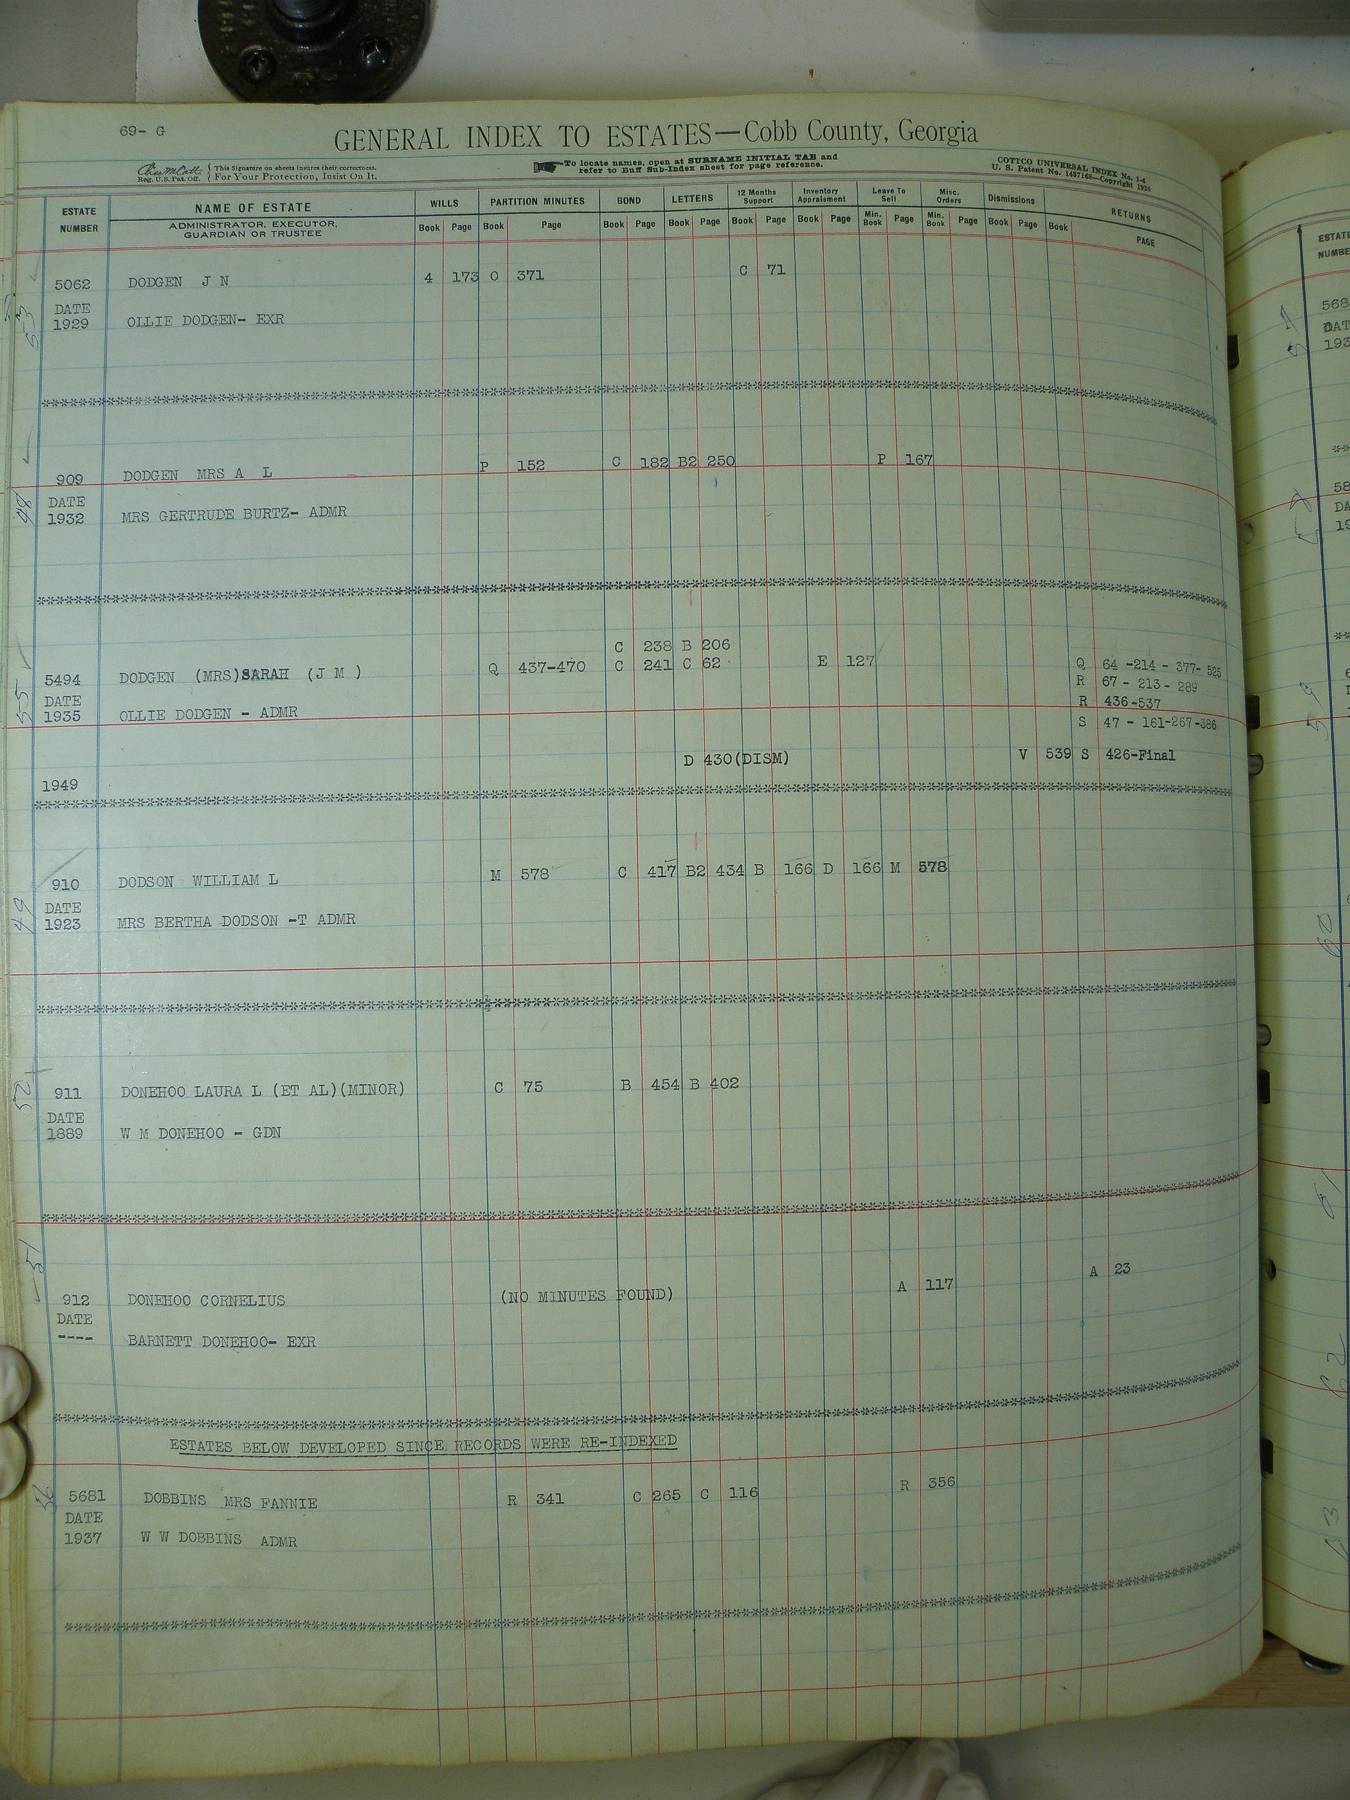 69- G
GENERAL INDEX TO ESTATES—Cobb County, Georgia
This Signature on sheets insures their correctness.
Reg. U.S. Pat. Off. For Your Protection, Insist On It.
To locate names, open at SURNAME INITIAL TAB and
refer to Buff Sub-Index sheet for page reference.
COTTCO UNIVERSAL INDEX No. 1-4
U. S. Patent No. 1487168—Copyright 1926
ESTATE NUMBER NAME OF ESTATE WILLS PARTITION MINUTES BOND LETTERS 12 Months Support Inventory Appraisment Leave To Sell Misc. Orders Dismissions RETURNS
ADMINISTRATOR, EXECUTOR, GUARDIAN OR TRUSTEE Book Page Book Page Book Page Book Page Book Page Book Page Min. Book Page Min. Book Page Book Page Book PAGE
5062 DODGEN J N 4 173 O 371 C 71
DATE
1929 OLLIE DODGEN- EXR
53
909 DODGEN MRS A L P 152 C 182 B2 250 P 167
DATE
1932 MRS GERTRUDE BURTZ- ADMR
48
C 238 B 206
5494 DODGEN (MRS)SARAH (J M ) Q 437-470 C 241 C 62 E 127 Q 64 -214 - 377- 525
R 67 - 213 - 289
DATE R 436-537
1935 OLLIE DODGEN - ADMR S 47 - 161-267-386
55
D 430(DISM) V 539 S 426-Final
1949
910 DODSON WILLIAM L M 578 C 417 B2 434 B 166 D 166 M 578
DATE
1923 MRS BERTHA DODSON -T ADMR
49
911 DONEHOO LAURA L (ET AL)(MINOR) C 75 B 454 B 402
DATE
1889 W M DONEHOO - GDN
51
A 23
912 DONEHOO CORNELIUS (NO MINUTES FOUND) A 117
DATE
---- BARNETT DONEHOO- EXR
ESTATES BELOW DEVELOPED SINCE RECORDS WERE RE-INDEXED
5681 DOBBINS MRS FANNIE R 341 C 265 C 116 R 356
DATE
1937 W W DOBBINS ADMR
56